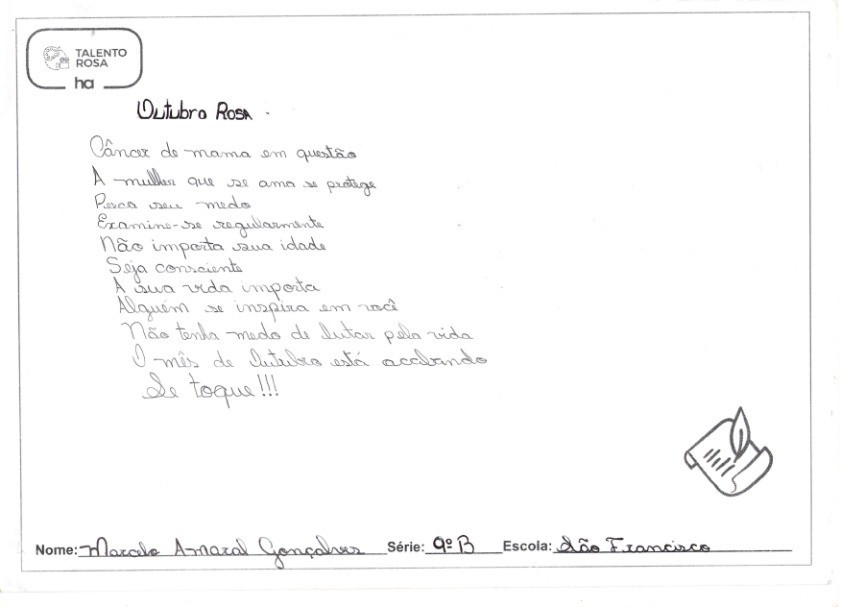 TALENTO
ROSA
ha
Outubro Rosa.
Câncer de mama em questão
A mulher que se ama se protege
Perca seu medo
Examine-se regularmente
Não importa sua idade
Seja consciente
A sua vida importa
Alguém se inspira em você
Não tenha medo de lutar pela vida
O mês de Outubro está acabando
Se toque!!!
Nome: Marcelo Amaral Gonçalves Série: 9º B Escola: São Francisco